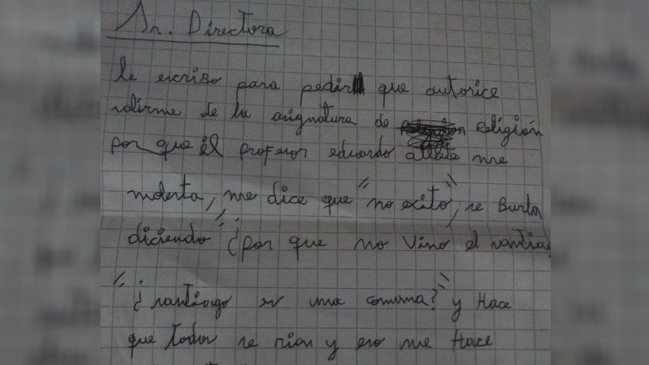 Sr. Directora
le escribo para pedir que autorice
salirme de la asignatura de Religión
por que él profesor eduardo me
molesta, me dice que "no exito", se Burla
diciendo "¿por que no vino el santiago
"¿santiago es una comuna?" y Hace
que todos se rian y eso me Hace